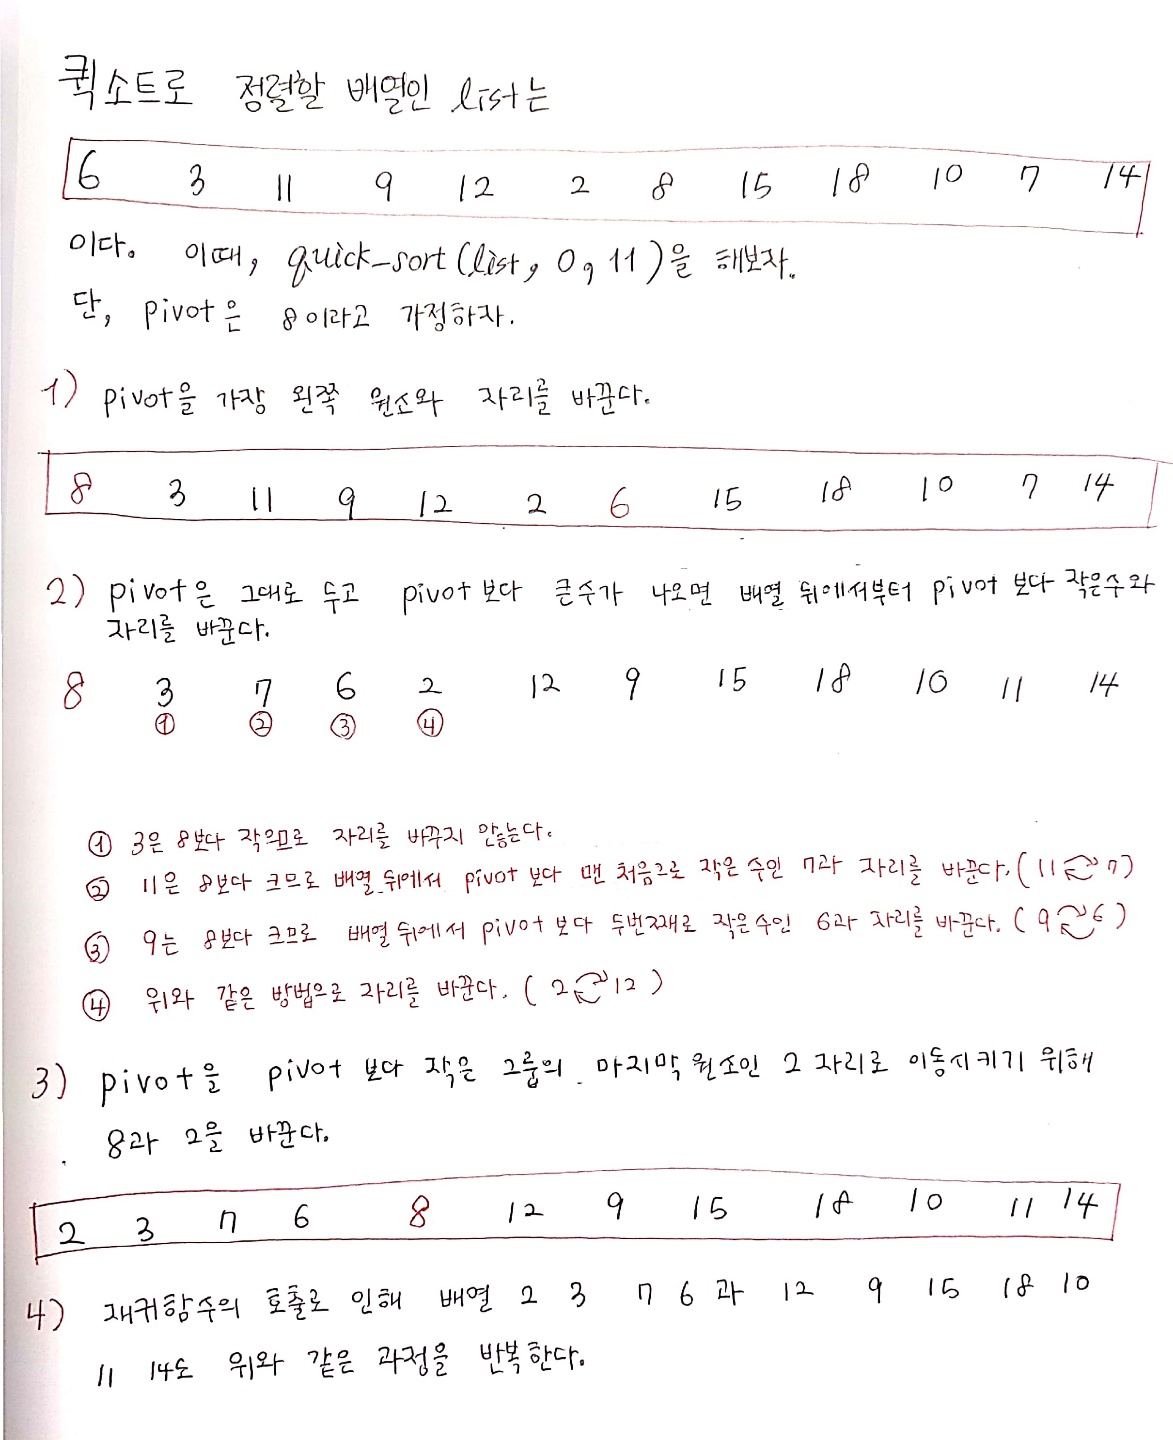 퀵소트로 정렬할 배열인 list는
6 3 11 9 12 2 8 15 18 10 7 14
이다. 이때, quick-sort(list, 0, 11)을 해보자.
단, pivot은 8이라고 가정하자.
1) pivot을 가장 왼쪽 원소와 자리를 바꾼다.
8 3 11 9 12 2 6 15 18 10 7 14
2) pivot은 그대로 두고 pivot 보다 큰수가 나오면 배열 뒤에서부터 pivot 보다 작은수와
자리를 바꾼다.
8 3 7 6 2 12 9 15 18 10 11 14
① ② ③ ④
① 3은 8보다 작으므로 자리를 바꾸지 않는다.
② 11은 8보다 크므로 배열 뒤에서 pivot 보다 맨 처음으로 작은 수인 7과 자리를 바꾼다. (11 7)
③ 9는 8보다 크므로 배열 뒤에서 pivot 보다 두번째로 작은수인 6과 자리를 바꾼다. (9 6)
④ 위와 같은 방법으로 자리를 바꾼다. (2 12)
3) pivot을 pivot 보다 작은 그룹의 마지막 원소인 2 자리로 이동시키기 위해
8과 2을 바꾼다.
2 3 7 6 8 12 9 15 18 10 11 14
4) 재귀함수의 호출로 인해 배열 2 3 7 6 과 12 9 15 18 10
11 14도 위와 같은 과정을 반복한다.